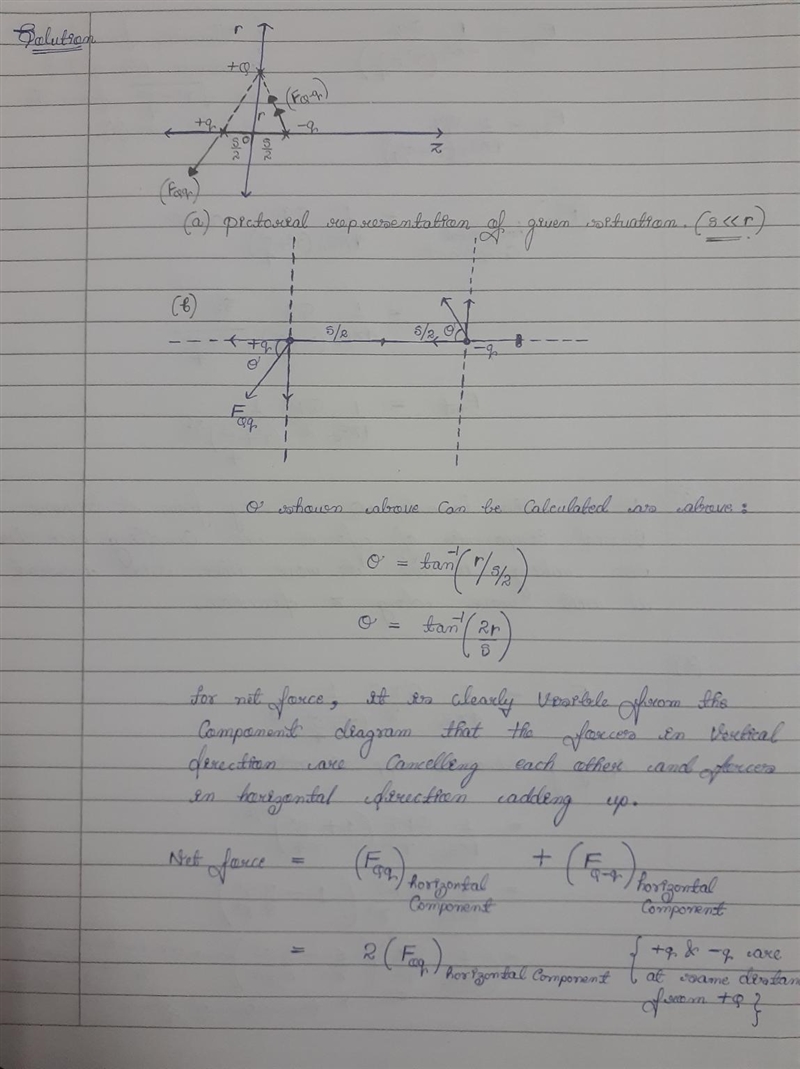 Solution
r
+Q
(FQ-q)
r
+q
O
-q
S/2
S/2
z
(FQq)
(a) pictorial representation of given situation. (s<<r)
(b)
S/2
S/2
θ
+q
-q
θ
FQq
θ shown above can be calculated as above:
θ = tan⁻¹(r/s/2)
θ = tan⁻¹(2r/s)
for net force, it is clearly visible from the
component diagram that the forces in vertical
direction are cancelling each other and forces
in horizontal direction adding up.
Net force = (FQq) horizontal component + (FQ-q) horizontal component
= 2(FQq) horizontal component {+q & -q are
at same distan
from +Q}